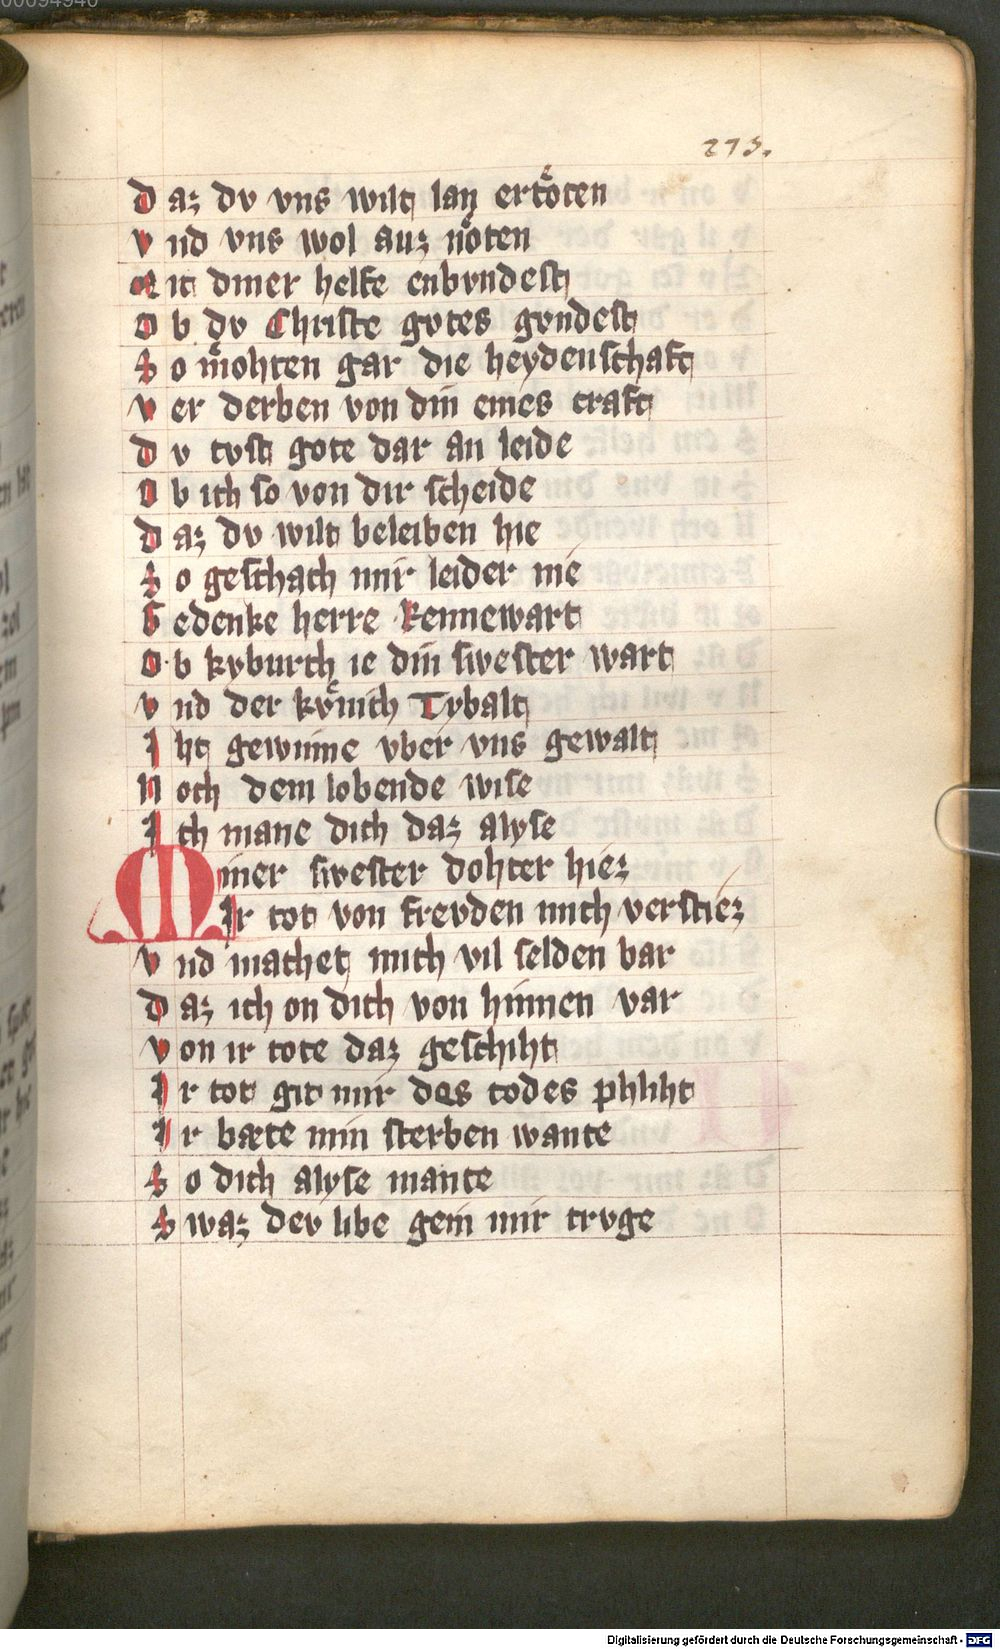 273.
daz dv vns wilt lan ertoͤten
vnd vns wol auz noͤten
Mit diner helfe enbvndest
Ob dv Christe gotes gvndest
So moͤhten gar die heydenschaft
verderben von din eines craft
Dv tvst gote dar an leide
Ob ich so von dir scheide
Daz dv wilt beleiben hie
So geschach mir leider nie
Gedenke herre Rennewart
Ob kyburch ie din swester wart
vnd der kvͤnich Tybalt
Iht gewinne vber vns gewalt
Noch dem lobende wise
Ich mane dich daz alyse
Miner swester dohter hiez
Ir tot von frevden mich verstiez
vnd machet mich vil selden bar
Daz ich on dich von hinnen var
von ir tote daz geschiht
Ir tot git mir des todes phliht
Ir bæte min sterben wante
So dich alyse mante
Swaz dev libe gein mir trvge
Digitalisierung gefördert durch die Deutsche Forschungsgemeinschaft - DFG